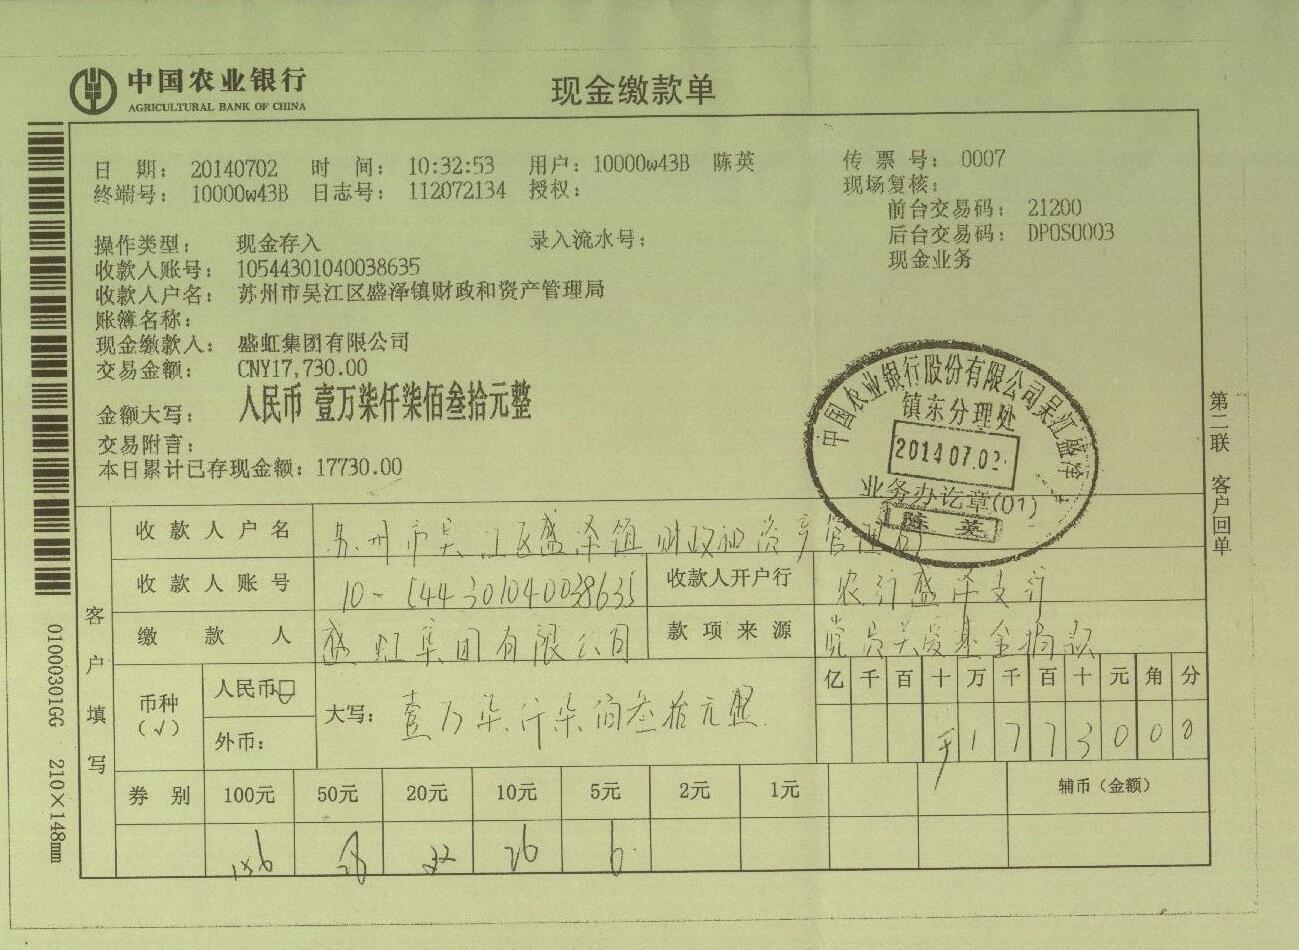 中国农业银行
AGRICULTURAL BANK OF CHINA
现金缴款单
日 期: 20140702 时 间: 10:32:53 用户: 10000w43B 陈英 传 票 号: 0007
终端号: 10000w43B 日志号: 112072134 授权: 现场复核:
前台交易码: 21200
后台交易码: DP0S0003
现金业务
操作类型: 现金存入 录入流水号:
收款人账号: 10544301040038635
收款人户名: 苏州市吴江区盛泽镇财政和资产管理局
账簿名称:
现金缴款人: 盛虹集团有限公司
交易金额: CNY17,730.00
金额大写: 人民币 壹万柒仟柒佰叁拾元整
交易附言:
本日累计已存现金额: 17730.00
中国农业银行股份有限公司吴江盛泽
镇东分理处
2014.07.02
业务办讫章(01)
陈 英
第二联 客户回单
0100301GG 210×148mm
客户填写
收款人户名 苏州市吴江区盛泽镇财政和资产管理局
收款人账号 10-544301040038635 收款人开户行 农行盛泽支行
缴款人 盛虹集团有限公司 款项来源 党员关爱基金捐款
币种(√) 人民币□ 外币: 大写: 壹万柒仟柒佰叁拾元整
亿 千 百 十 万 千 百 十 元 角 分
¥ 1 7 7 3 0 0 0
券 别 100元 50元 20元 10元 5元 2元 1元 辅币(金额)
26 6